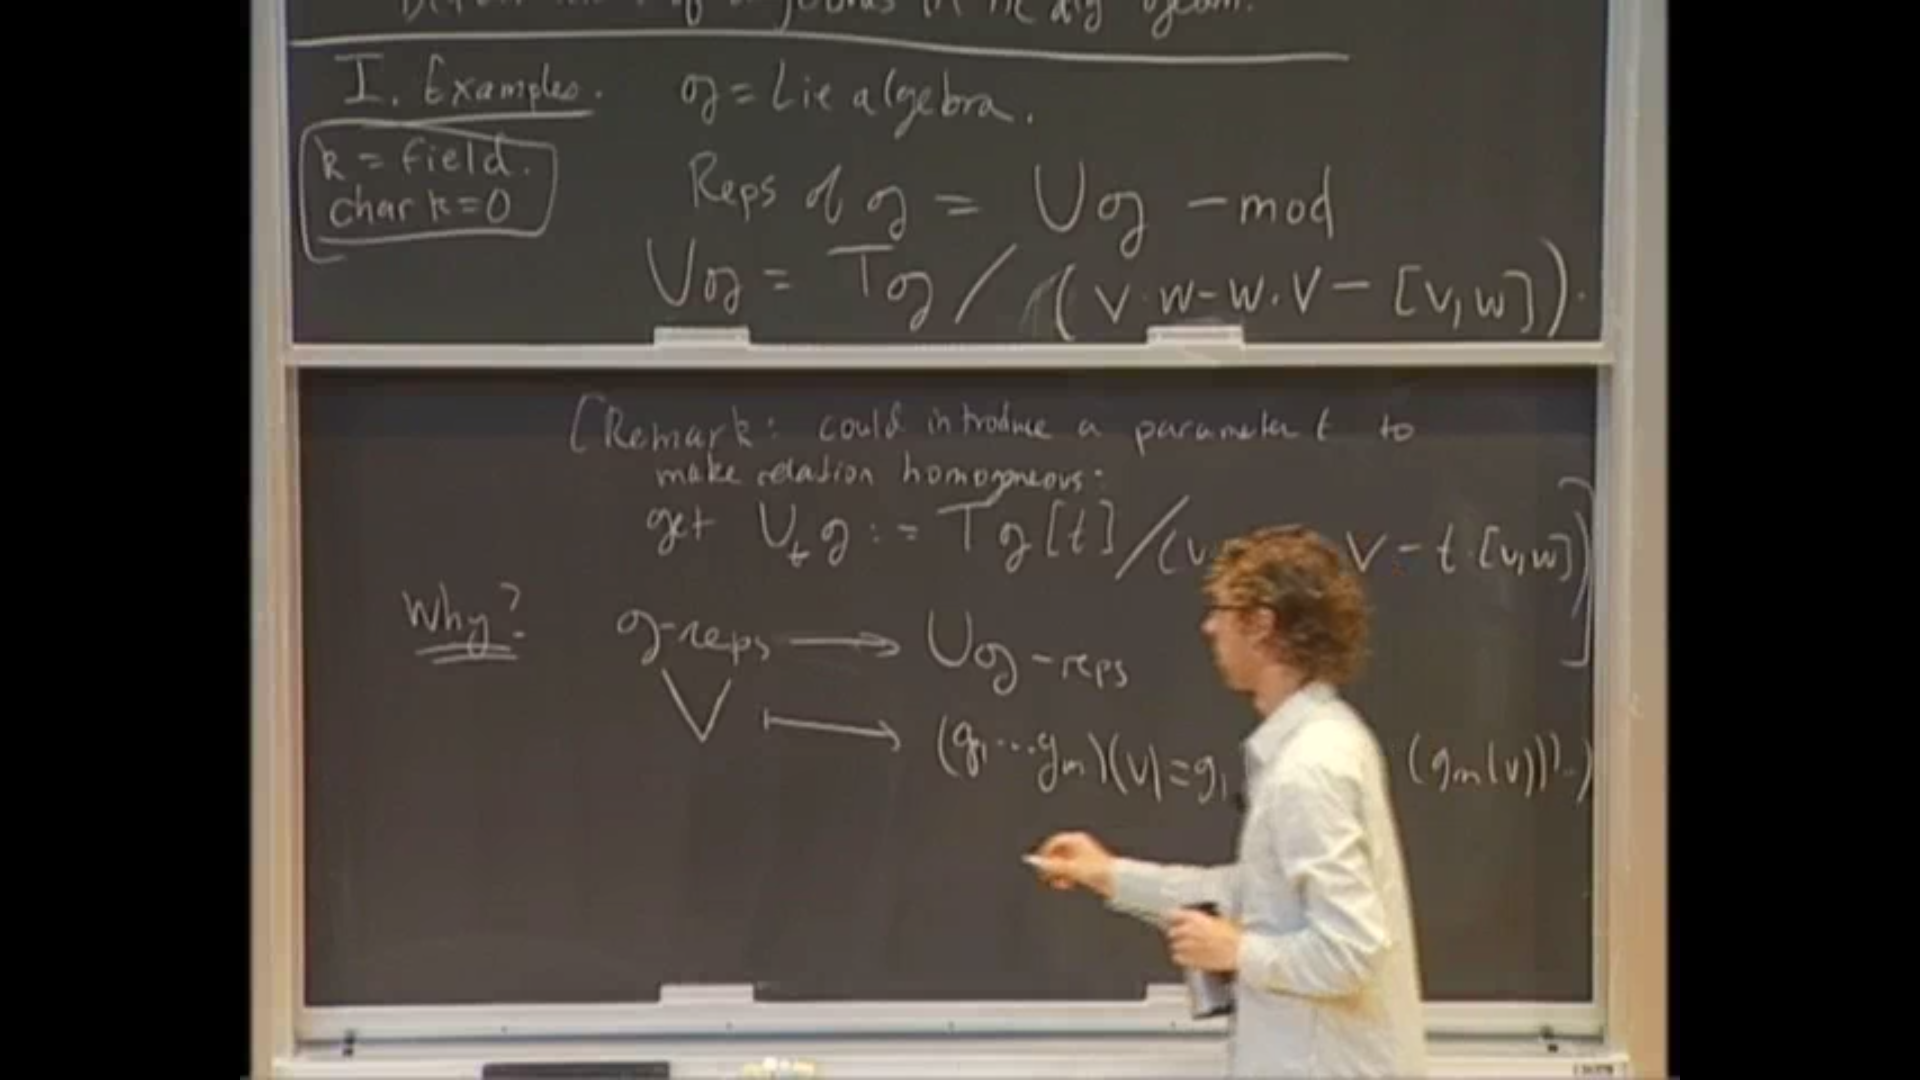 of algebras in nc alg geom.
I. Examples. 𝔤 = Lie algebra.
k = field.
char k = 0
Reps of 𝔤 = U𝔤 -mod
U𝔤 = T𝔤 / (v·w - w·v - [v,w]).
[Remark: could introduce a parameter t to
make relation homogeneous:
get U_t 𝔤 := T𝔤[t] / (v v - t·[v,w])]
Why? 𝔤-reps → U𝔤-reps
V ↦ (g₁...gₘ)(v) = g₁ (gₘ(v))..)